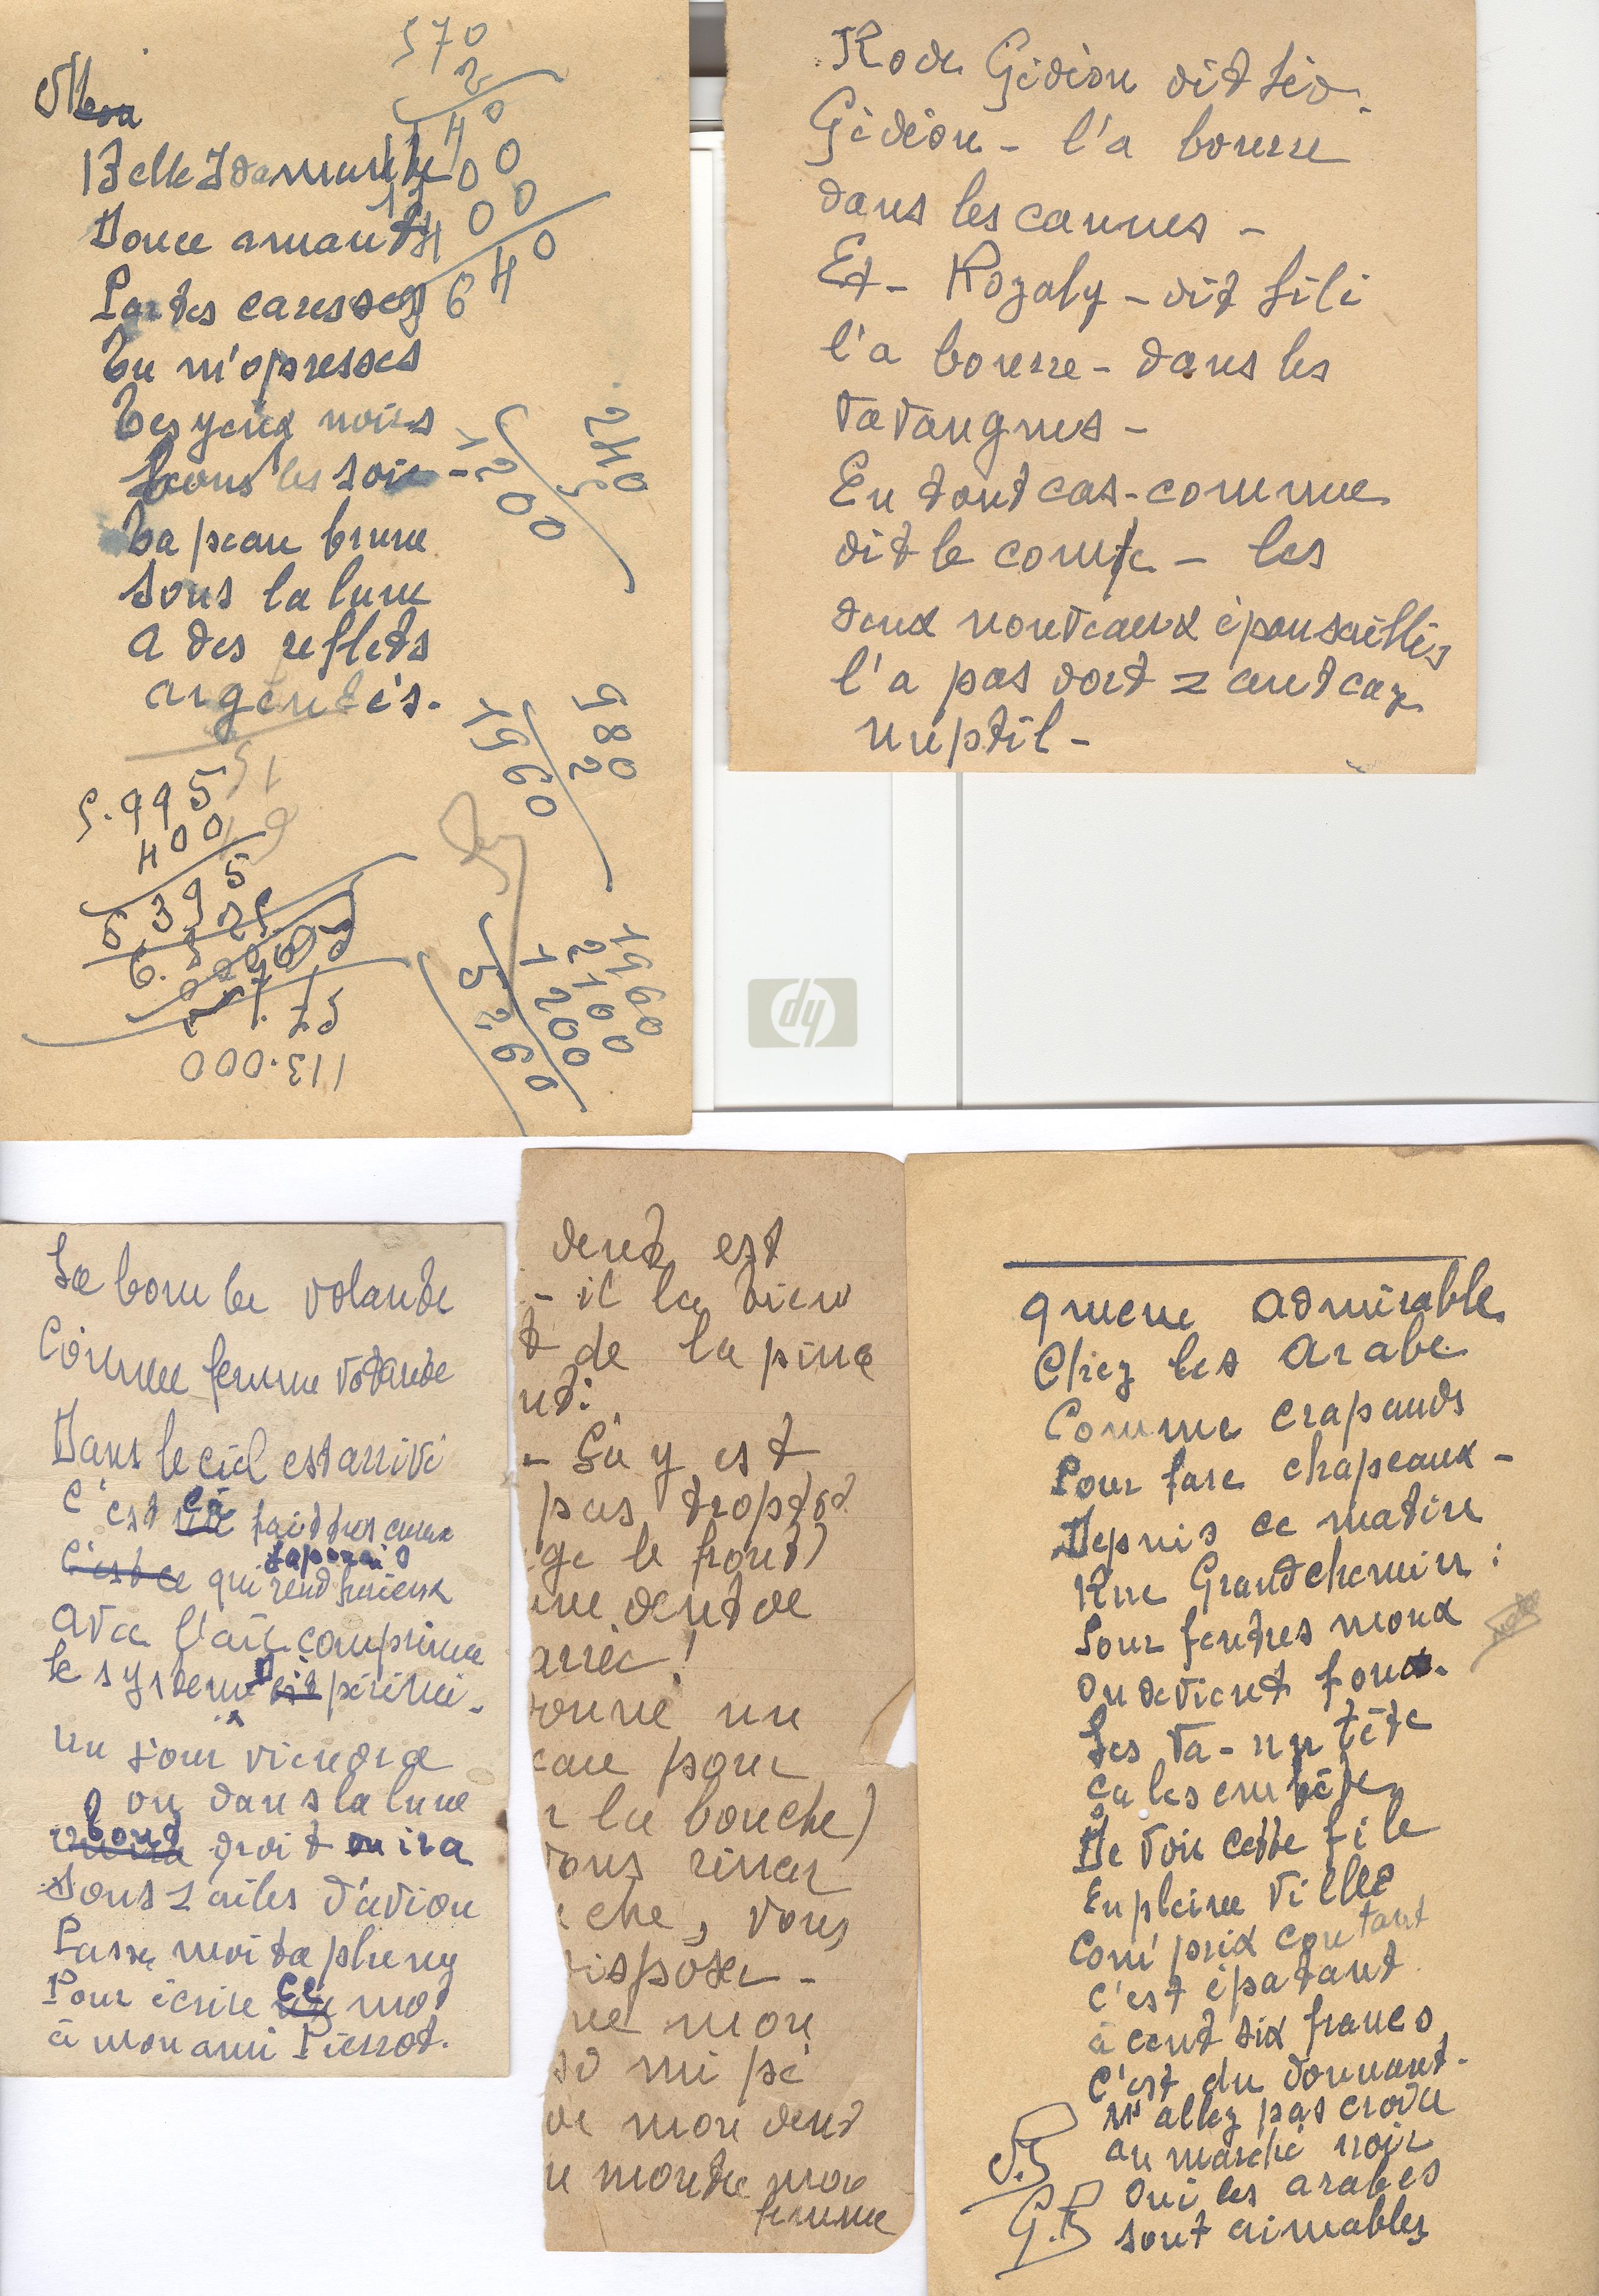 570
2
1140
00
00
640
Belle Idamante
Douce amante
Par tes caresses
Tu m'opresses
Tes yeux noirs
Tous les soir -
Ta peau brune
Sous la lune
A des reflets
argentés.
240
5
1200
980
2
1960
5.995
400
5395
113.000
1960
2100
1200
5.260
Rode Gidéon dit Léo
Gidéon - l'a bourre
dans les cannes -
Et - Rozaly - dit fili
l'a bourre - dans les
vavangues -
En tout cas - comme
dit le comte - les
deux nouveaux épousaillés
l'a pas dort z aut caz
nuptil -
La bombe volante
Comme femme votante
Dans le ciel est arrivé
C'est ce fait curieux
c'est ce qui rend furieux
japonais
Avec l'air comprimé
le système périmé.
un jour viendra
ou dans la lune
bout droit on ira
Sous z ailes d'avion
Passe moi ta plume
Pour écrire ce mot
à mon ami Pierrot.
dent est
- il la bien
t de la pince
nt:
- Ça y est
pas trop tôt
ge le front)
une dent de
arrié!
donne un
eau pour
r la bouche)
vous rincer
che, vous
disposer -
ne mon
mi pé
de mon dent
u montre mon
femme
queue admirable
Chez les Arabe
Comme crapauds
Pour fare chapeaux -
Depuis ce matin
Rue Grandchemin :
Pour feutres moux
On devient fou.
Les va-nu tête
ça les embête
De voir cette file
En pleine ville
Com' prix coutant
c'est épatant
à cent six francs
C'est du donnant.
N'allez pas croire
au marché noir
Oui les arabes
sont aimables
G.B